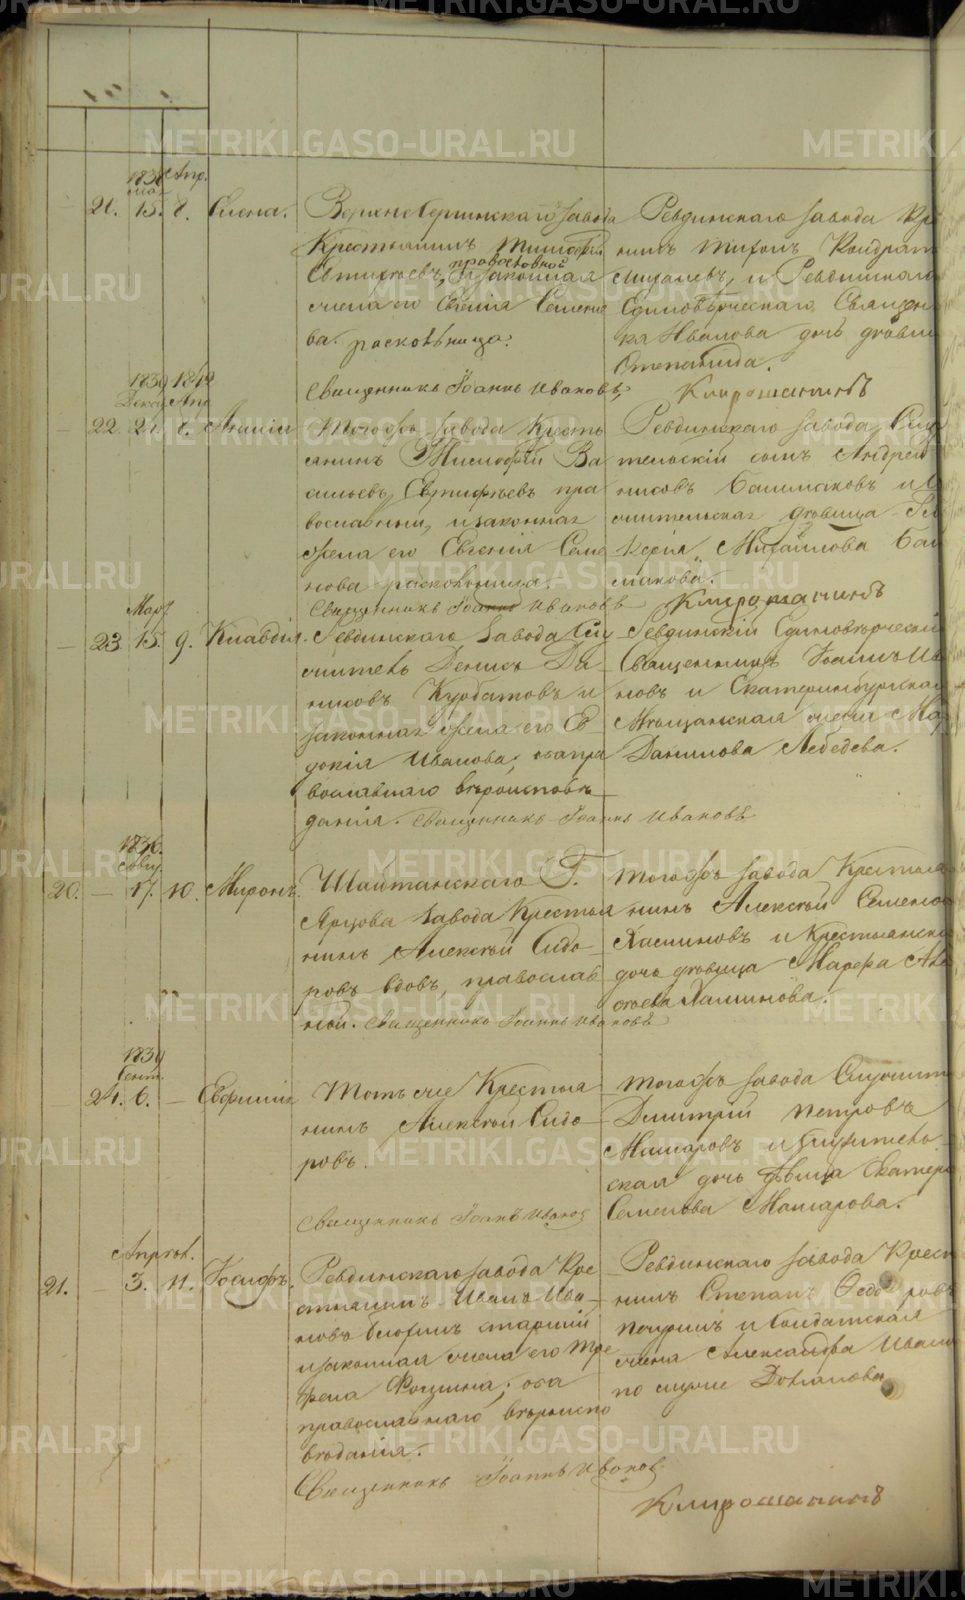 METRIKI.GASO-URAL.RU
1838 Апр.
Мая
21. 15. 8. Елена. Верхнесергинскаго завода
Крестьянинъ Тимофей
православной
и законная
жена его Евгенія Семено
ва. раскольница.
Священникъ Іоаннъ Ивановъ
Ревдинскаго завода Кре
нинъ Тихонъ Кондрат
и Ревдинскаго
Единовѣрческаго Священ
ка Иванова дочь дѣви
Степанида.
Клирошанинъ
1839 1840
Декаб Апр
22. 21. 8. Тогожъ завода Кресть
янинъ Тимофей Ва
сильевъ пра
вославный, и законная
жена его Евгенія Семе
нова раскольница.
Священникъ Іоаннъ Ивановъ
Ревдинскаго завода Слу
тельскій сынъ Андрей
нисовъ Башмаковъ и
служительская дѣвица
Михайлова Баш
макова.
Клирошанинъ
Март
23. 15. 9. Клавдія. Ревдинскаго завода Слу
житель Денисъ Де
нисовъ Курбатовъ и
законная жена его Ев
докія Иванова; оба пра
вославнаго вѣроисповѣ
данія. Священникъ Іоаннъ Ивановъ
Ревдинскій Единовѣрческій
Священникъ Іоаннъ Ива
новъ и Екатеринбургская
Мѣщанская жена Мар
Данилова Лебедева.
1836.
20. 17. 10. Миронъ. Шайтанскаго Г.
Ярцова завода Крестья
нинъ Алексѣй Сидо
ровъ вдовъ, православ
ной. Священникъ Іоаннъ Ивановъ
Тогожъ завода Крестья
нинъ Алексѣй Семенов
и Крестьянска
дочь дѣвица Марфа
1839
Сент.
24. 6. Евфимія Тотъ же Крестья
нинъ Алексѣй Сидо
ровъ.
Священникъ Іоаннъ Иванов
Тогожъ завода Служит
Дмитрій Петровъ
Макаровъ и Служитель
ская дочь дѣвица Екатери
Семенова Макарова.
Апрѣл.
21. 3. 11. Іосифъ. Ревдинскаго завода Кре
стьянинъ Иванъ Ива
новъ старшій
и законная жена его
Фомина; оба
православнаго вѣроиспо
вѣданія.
Священникъ Іоаннъ Иванов
Ревдинскаго завода Крест
нинъ Степанъ Федоровъ
и Солдатская
жена Александра Ивано
по мужѣ
Клирошанинъ